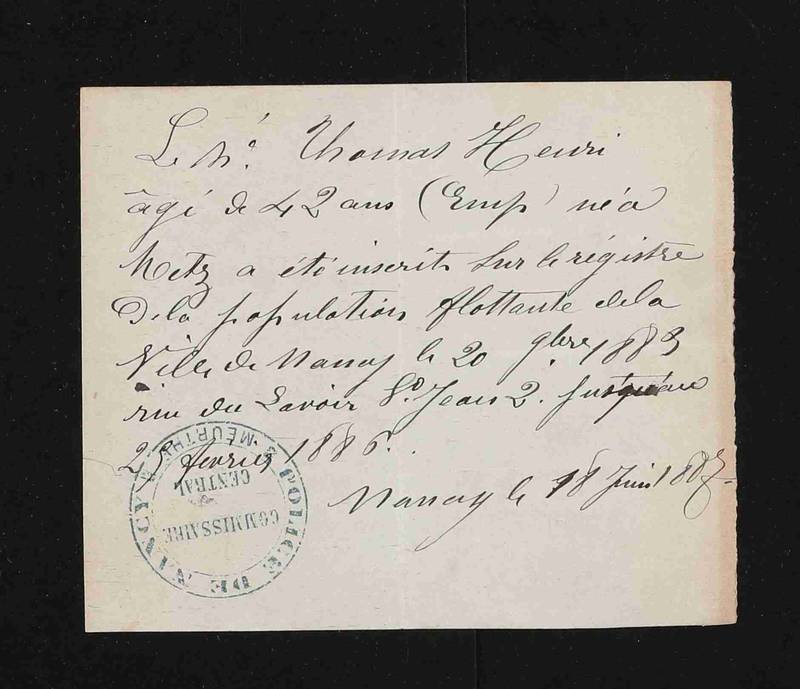 Le né Thomas Henri
âgé de 42 ans (Emp) né à
Metz a été inscrit sur le régistre
de la population flottante de la
Ville de Nancy le 20 9bre 1883
rue du Lavoir St Jean 2. jusqu'au
25 février 1886.
Nancy le 18 Juin 1887.
POLICE DE NANCY
MEURTHE
COMMISSAIRE
CENTRAL